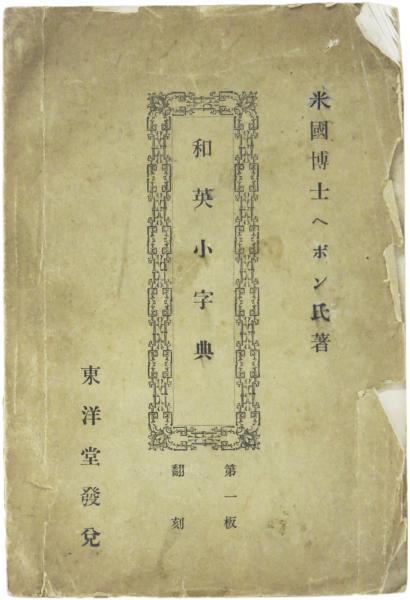 米國博士ヘボン氏著
和英小字典
第一板
翻刻
東洋堂發兌